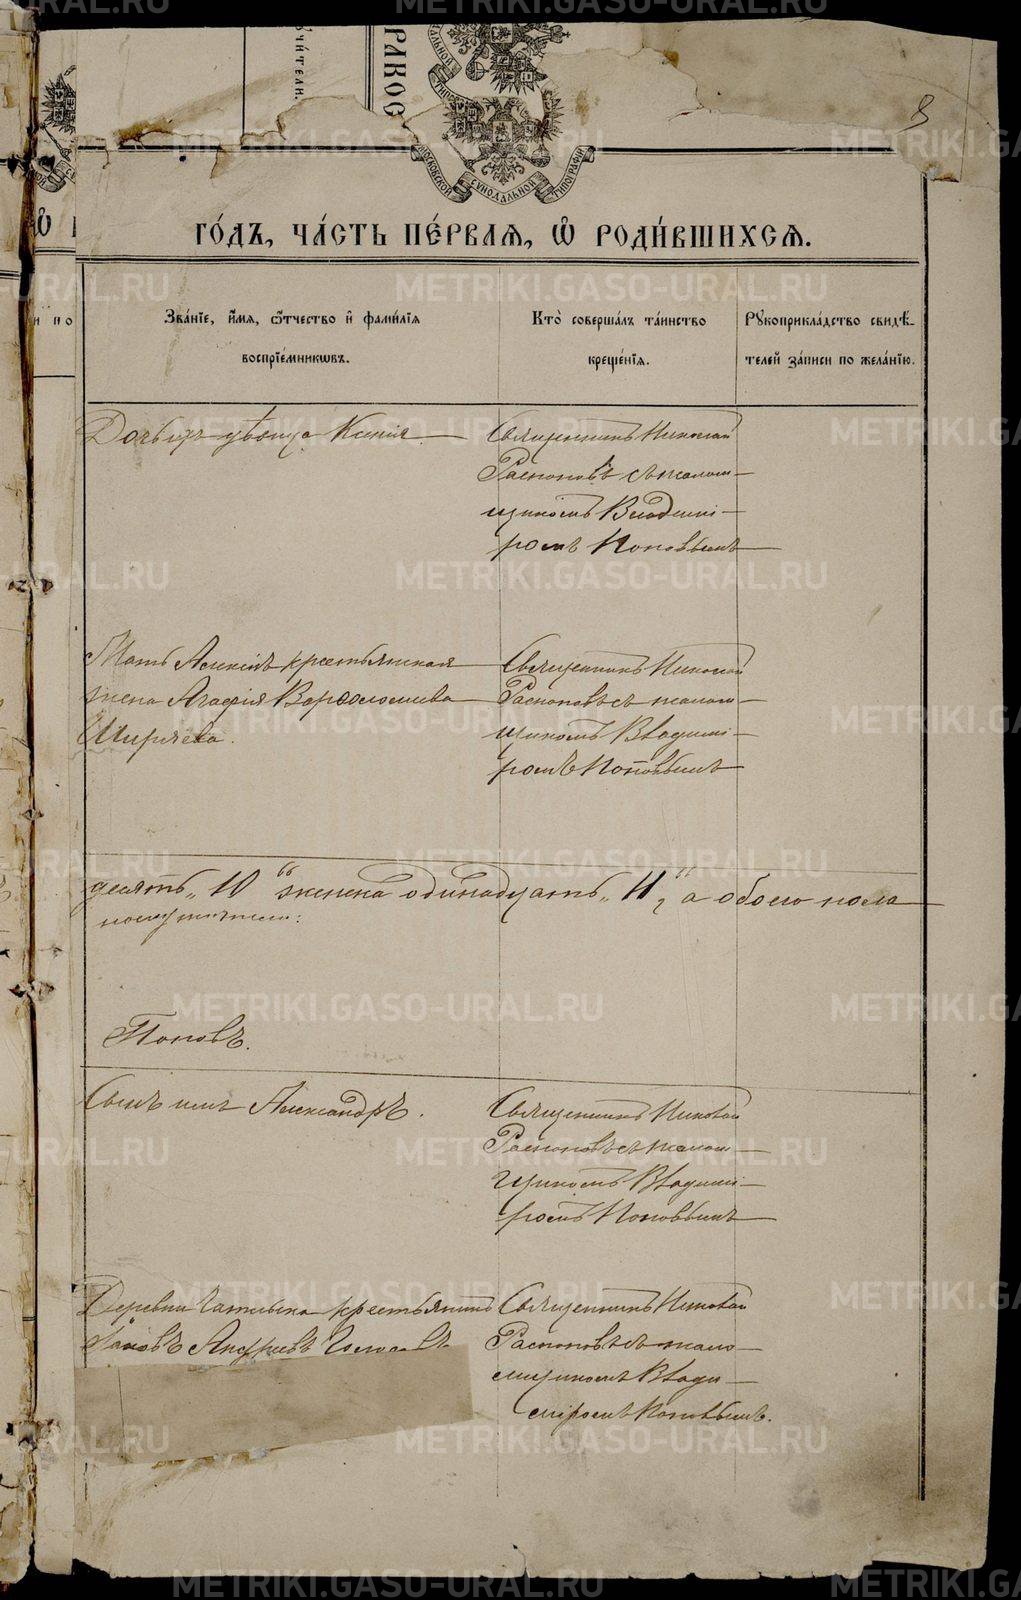 8
ГО́ДЪ, ЧА́СТЬ ПЕ́РВАЯ, Ѡ҆ РОДИ́ВШИХСЯ.
Зва́нїе, и҆́мя, ѻ҆́тчество и҆ фами́лїя
воспрїе́мникѡвъ.
Кто̀ соверша́лъ та́инство
креще́нїя.
Рꙋкоприкла́дство свидѣ́-
телей за́писи по жела́нїю.
Дочь ихъ дѣвица Ксенія.
Священникъ Николай
Распоповъ съ псалом-
щикомъ Владимі-
ромъ Поповымъ
Мать крестьянская
жена Агафія Варѳоломеева
Ширяева.
Священникъ Николай
Распоповъ съ псалом-
щикомъ Владимі-
ромъ Поповымъ
десять „10“ женска одинадцать „11“, а обоего пола
Поповъ.
Сынъ ихъ Александръ.
Священникъ Николай
Распоповъ съ псалом-
щикомъ Владимі-
ромъ Поповымъ
Деревни крестьянинъ
Іаковъ Андреевъ
Священникъ Николай
Распоповъ съ псало-
мщикомъ Влади-
міромъ Поповымъ.
METRIKI.GASO-URAL.RU